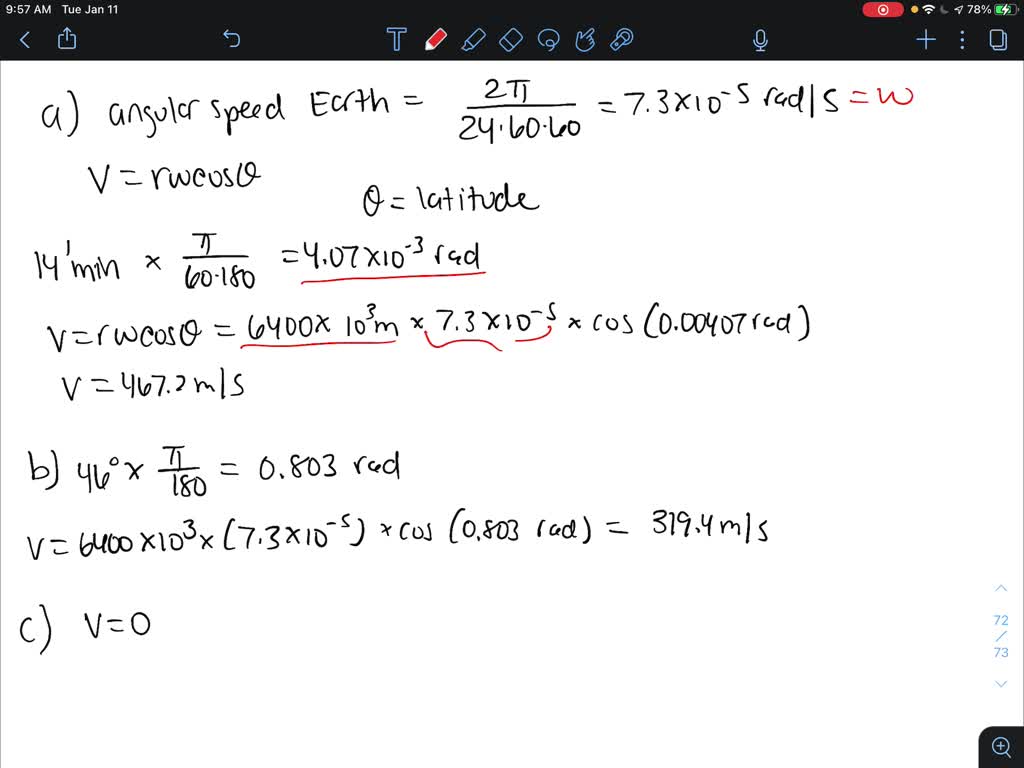 9:57 AM Tue Jan 11 78%
a) angular speed Earth = 2π / 24·60·60 = 7.3×10⁻⁵ rad/s = ω
V = rωcosθ
θ = latitude
14' min × π / 60·180 = 4.07×10⁻³ rad
V = rωcosθ = 6400 × 10³m × 7.3×10⁻⁵ × cos (0.00407 rad)
V = 467.2 m/s
b) 46° × π / 180 = 0.803 rad
V = 6400 ×10³ × (7.3×10⁻⁵) × cos (0.803 rad) = 319.4 m/s
c) V = 0
72
/
73